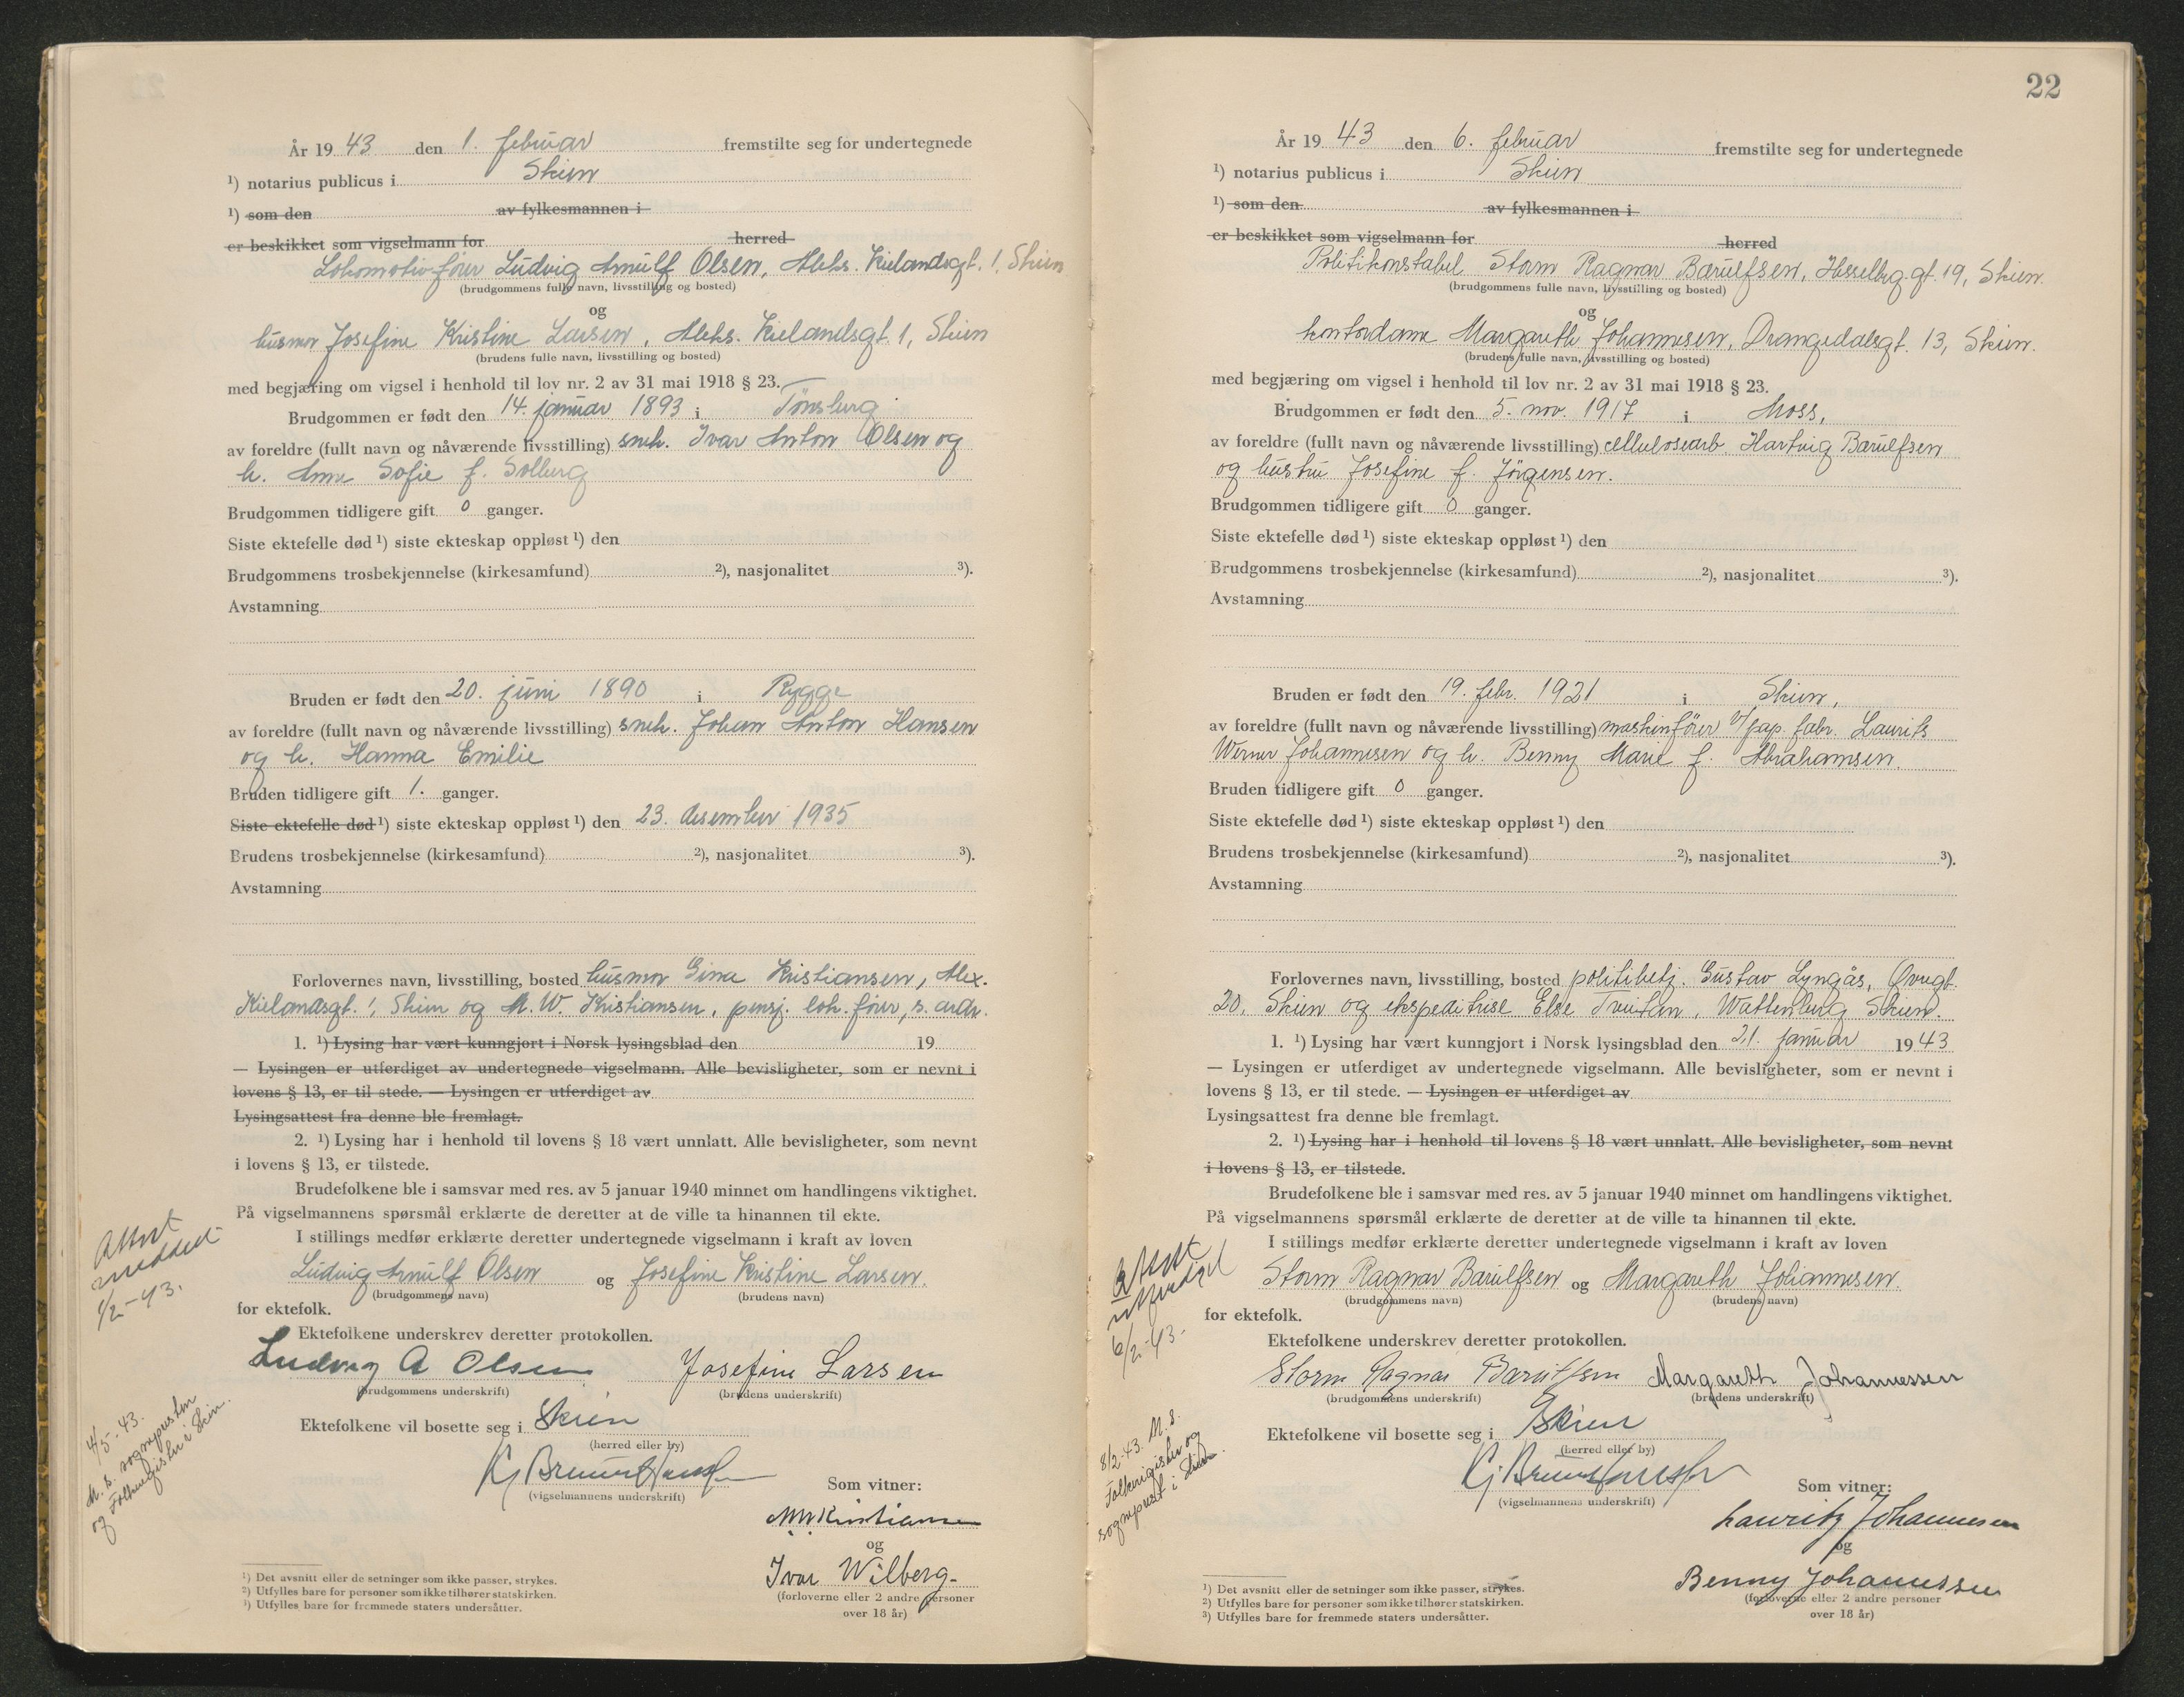 År 19 43 den 1. februar fremstilte seg for undertegnede
¹) notarius publicus i Skien
¹) som den av fylkesmannen i
er beskikket som vigselmann for herred
Lokomotivfører Ludvig Arnulf Olsen, Aleks. Kielandsgt. 1, Skien
(brudgommens fulle navn, livsstilling og bosted)
og
husmor Josefine Kristine Larsen, Aleks. Kielandsgt. 1, Skien
(brudens fulle navn, livsstilling og bosted)
med begjæring om vigsel i henhold til lov nr. 2 av 31 mai 1918 § 23.
Brudgommen er født den 14. januar 1893 i Tönsberg
av foreldre (fullt navn og nåværende livsstilling) snek. Ivar Anton Olsen og
h. Anna Sofie f. Solberg
Brudgommen tidligere gift 0 ganger.
Siste ektefelle død ¹) siste ekteskap oppløst ¹) den
Brudgommens trosbekjennelse (kirkesamfund) ²), nasjonalitet ³).
Avstamning
Bruden er født den 20. juni 1890 i Rygge
av foreldre (fullt navn og nåværende livsstilling) snek. Johan Anton Hansen
og h. Hanna Emilie
Bruden tidligere gift 1. ganger.
Siste ektefelle død ¹) siste ekteskap oppløst ¹) den 23. desember 1935
Brudens trosbekjennelse (kirkesamfund) ²), nasjonalitet ³).
Avstamning
Forlovernes navn, livsstilling, bosted husmor Gina Kristiansen, Alex.
Kielandsgt. 1, Skien og M. W. Kristiansen, pensj. lok. fører, s. adr.
1. ¹) Lysing har vært kunngjort i Norsk lysingsblad den 19
— Lysingen er utferdiget av undertegnede vigselmann. Alle bevisligheter, som er nevnt i
lovens § 13, er til stede. — Lysingen er utferdiget av
Lysingsattest fra denne ble fremlagt.
2. ¹) Lysing har i henhold til lovens § 18 vært unnlatt. Alle bevisligheter, som nevnt
i lovens § 13, er tilstede.
Brudefolkene ble i samsvar med res. av 5 januar 1940 minnet om handlingens viktighet.
På vigselmannens spørsmål erklærte de deretter at de ville ta hinannen til ekte.
I stillings medfør erklærte deretter undertegnede vigselmann i kraft av loven
Ludvig Arnulf Olsen og Josefine Kristine Larsen.
(brudgommens navn) (brudens navn)
for ektefolk.
Ektefolkene underskrev deretter protokollen.
Ludvig A Olsen Josefine Larsen
(brudgommens underskrift) (brudens underskrift)
Ektefolkene vil bosette seg i Skien
(herred eller by)
(vigselmannens underskrift)
Som vitner:
MWKristiansen
og
Ivar Wilberg-
(forloverne eller 2 andre personer
over 18 år)
¹) Det avsnitt eller de setninger som ikke passer, strykes.
²) Utfylles bare for personer som ikke tilhører statskirken.
³) Utfylles bare for fremmede staters undersåtter.
Attest
meddelt
1/2-43.
4/5-43.
M. s. sognepresten
og Folkeregister i Skien.
22
År 19 43 den 6. februar fremstilte seg for undertegnede
¹) notarius publicus i Skien
¹) som den av fylkesmannen i
er beskikket som vigselmann for herred
Politikonstabel Storm Ragnar Barulfsen, Hesselbg.gt. 19, Skien.
(brudgommens fulle navn, livsstilling og bosted)
og
kontordame Margareth Johannesen, Drangedalsgt. 13, Skien.
(brudens fulle navn, livsstilling og bosted)
med begjæring om vigsel i henhold til lov nr. 2 av 31 mai 1918 § 23.
Brudgommen er født den 5. nov. 1917 i Moss,
av foreldre (fullt navn og nåværende livsstilling) cellulosearb. Hartvig Barulfsen
og hustru Josefine f. Jörgensen.
Brudgommen tidligere gift 0 ganger.
Siste ektefelle død ¹) siste ekteskap oppløst ¹) den
Brudgommens trosbekjennelse (kirkesamfund) ²), nasjonalitet ³).
Avstamning
Bruden er født den 19. febr. 1921 i Skien,
av foreldre (fullt navn og nåværende livsstilling) maskinförer v/pap. fabr. Laurits
Werner Johannesen og h. Benny Marie f. Abrahamsen.
Bruden tidligere gift 0 ganger.
Siste ektefelle død ¹) siste ekteskap oppløst ¹) den
Brudens trosbekjennelse (kirkesamfund) ²), nasjonalitet ³).
Avstamning
Forlovernes navn, livsstilling, bosted politibetj. Gustav Lyngås,
20, Skien og ekspeditrise Else Tveitan, Wattenberg Skien.
1. ¹) Lysing har vært kunngjort i Norsk lysingsblad den 21. januar 19 43
— Lysingen er utferdiget av undertegnede vigselmann. Alle bevisligheter, som er nevnt i
lovens § 13, er til stede. — Lysingen er utferdiget av
Lysingsattest fra denne ble fremlagt.
2. ¹) Lysing har i henhold til lovens § 18 vært unnlatt. Alle bevisligheter, som nevnt
i lovens § 13, er tilstede.
Brudefolkene ble i samsvar med res. av 5 januar 1940 minnet om handlingens viktighet.
På vigselmannens spørsmål erklærte de deretter at de ville ta hinannen til ekte.
I stillings medfør erklærte deretter undertegnede vigselmann i kraft av loven
Storm Ragnar Barulfsen og Margareth Johannesen.
(brudgommens navn) (brudens navn)
for ektefolk.
Ektefolkene underskrev deretter protokollen.
Storm Ragnar Barulfsen Margareth Johannessen
(brudgommens underskrift) (brudens underskrift)
Ektefolkene vil bosette seg i Skien
(herred eller by)
(vigselmannens underskrift)
Som vitner:
Lauritz Johannesen
og
Benny Johannessen
(forloverne eller 2 andre personer
over 18 år)
¹) Det avsnitt eller de setninger som ikke passer, strykes.
²) Utfylles bare for personer som ikke tilhører statskirken.
³) Utfylles bare for fremmede staters undersåtter.
Attest
6/2-43.
8/2-43. M. s.
Folkeregister og
sogneprest i Skien.